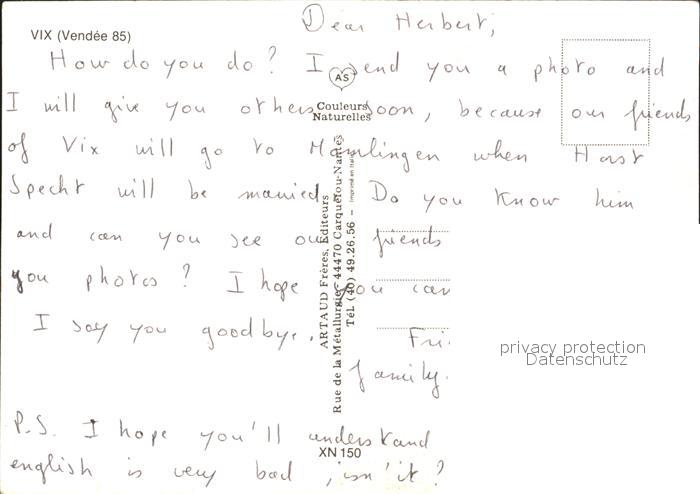 VIX (Vendée 85)
Dear Herbert,
How do you do? I send you a photo and
I will give you others soon, because our friends
of Vix will go to when Horst
Specht will be married. Do you know him
and can you see our friends
you photos? I hope you can
I say you goodbye.
family.
P.S. I hope you'll understand
english is very bad, isn'it?
AS
Couleurs
Naturelles
ARTAUD Frères, Editeurs
Rue de la Métallurgie - 44470 Carquefou-Nantes
Tél. (40) 49.26.56 - Imprimé en Italie
XN 150
privacy protection
Datenschutz